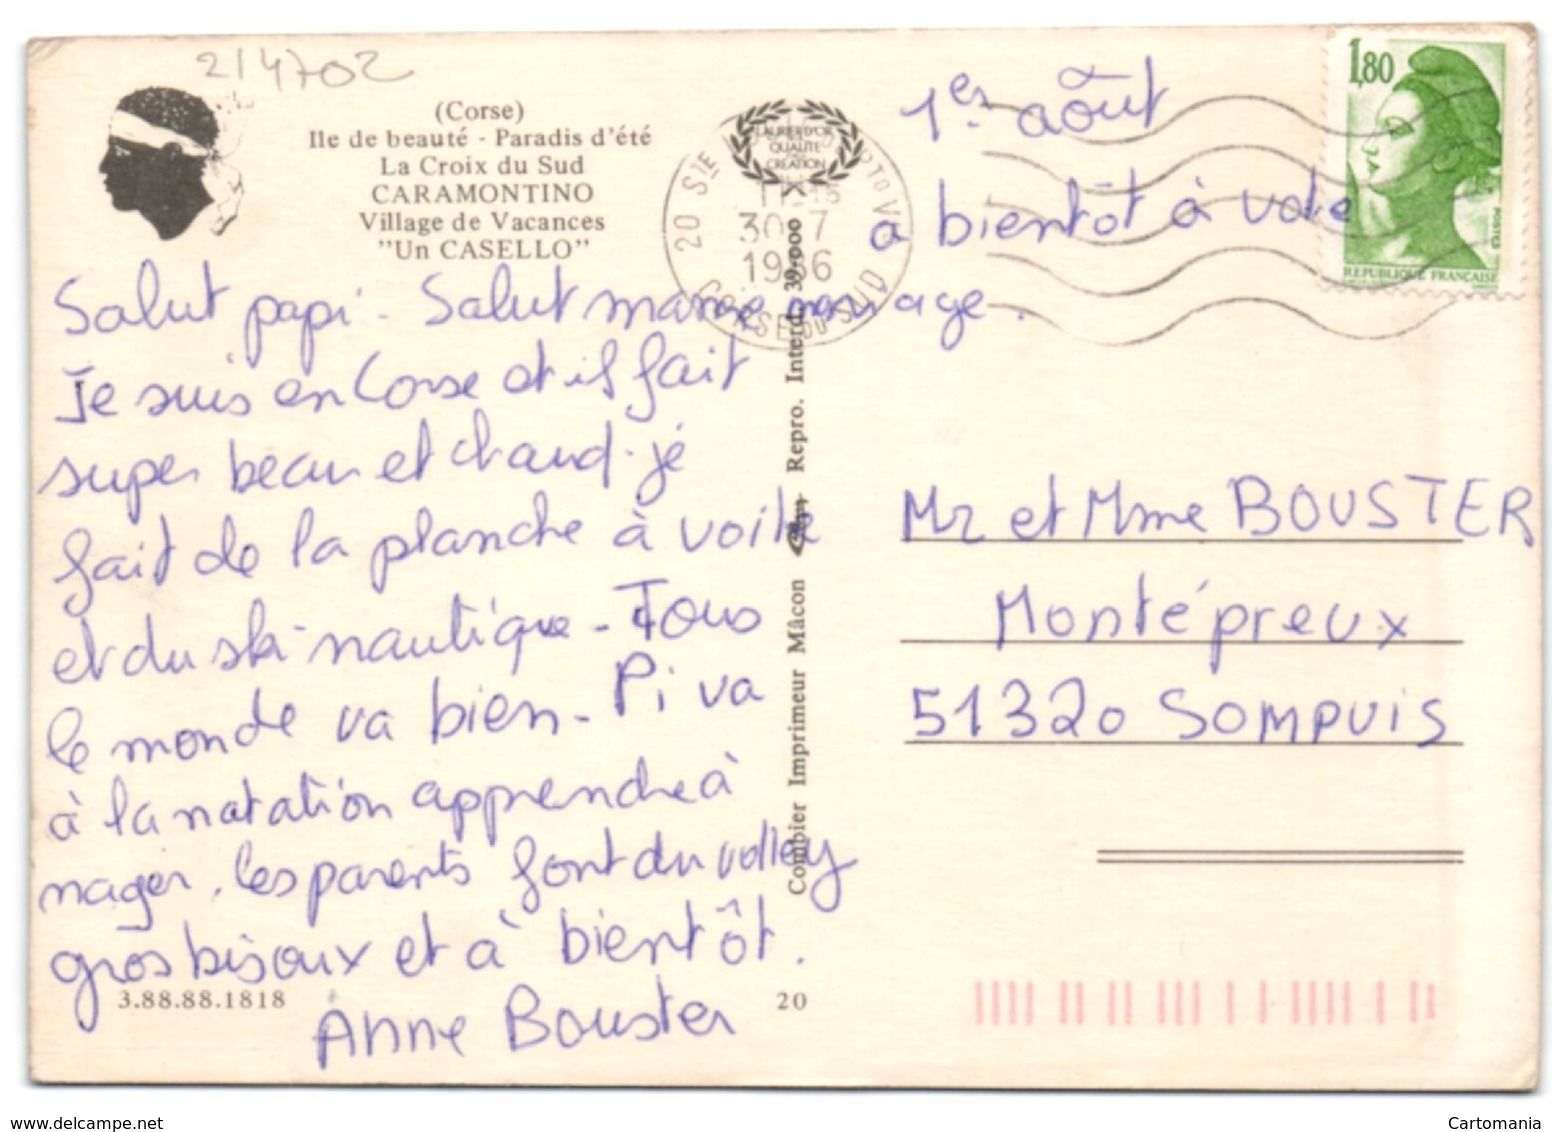 2/4702
(Corse)
Ile de beauté - Paradis d'été
La Croix du Sud
CARAMONTINO
Village de Vacances
"Un CASELLO"
LAURIER D'OR
QUALITE
CREATION
20 STE PORTO V.
30-7
1986
CORSE DU SUD
1,80
POSTES
REPUBLIQUE FRANÇAISE
1er août
à bientôt à votre
mariage.
Salut papi. Salut mamie
Je suis en Corse et il fait
super beau et chaud. je
fait de la planche à voile
et du ski-nautique - Tous
le monde va bien - Pi va
à la natation apprendre à
nager, les parents font du volley
gros bisoux et à bientôt.
Anne Bouster
3.88.88.1818
20
Combier Imprimeur Mâcon Repro. Interd. 39.000
Mr et Mme BOUSTER
Montépreux
51320 SOMPUIS
www.delcampe.net
Cartomania